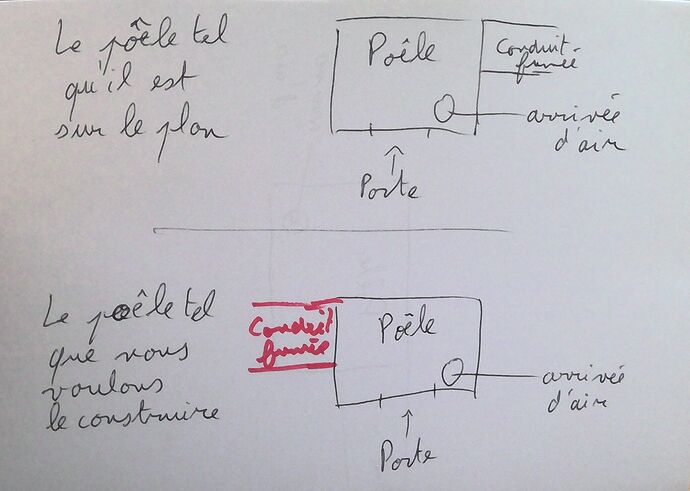 Le poêle tel
qu'il est
sur le plan
Poêle
Conduit
fumée
arrivée
d'air
Porte
Le poêle tel
que nous
voulons
le construire
Conduit
fumée
Poêle
arrivée
d'air
Porte